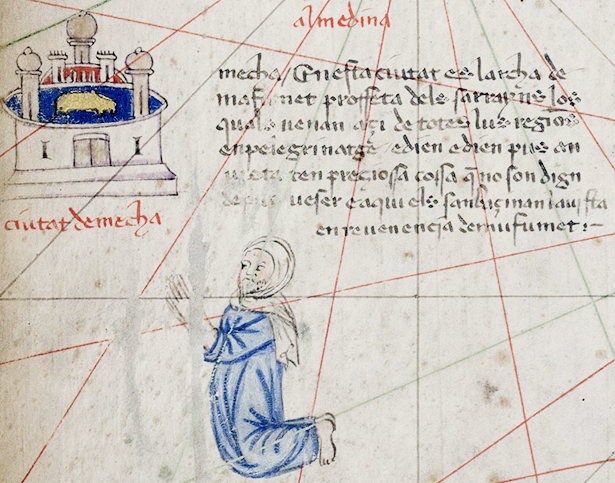 almedina
mecha / En esta ciutat es larcha de
mafumet proffeta dels sarrayns los
quals uenan açi de totes lurs regions
en pelegrinatge e dien e dien pus an
ten preciossa cossa q̃ no son dign
ueser e aqui els
en reuerencia de mafumet :~
ciutat de mecha
I I